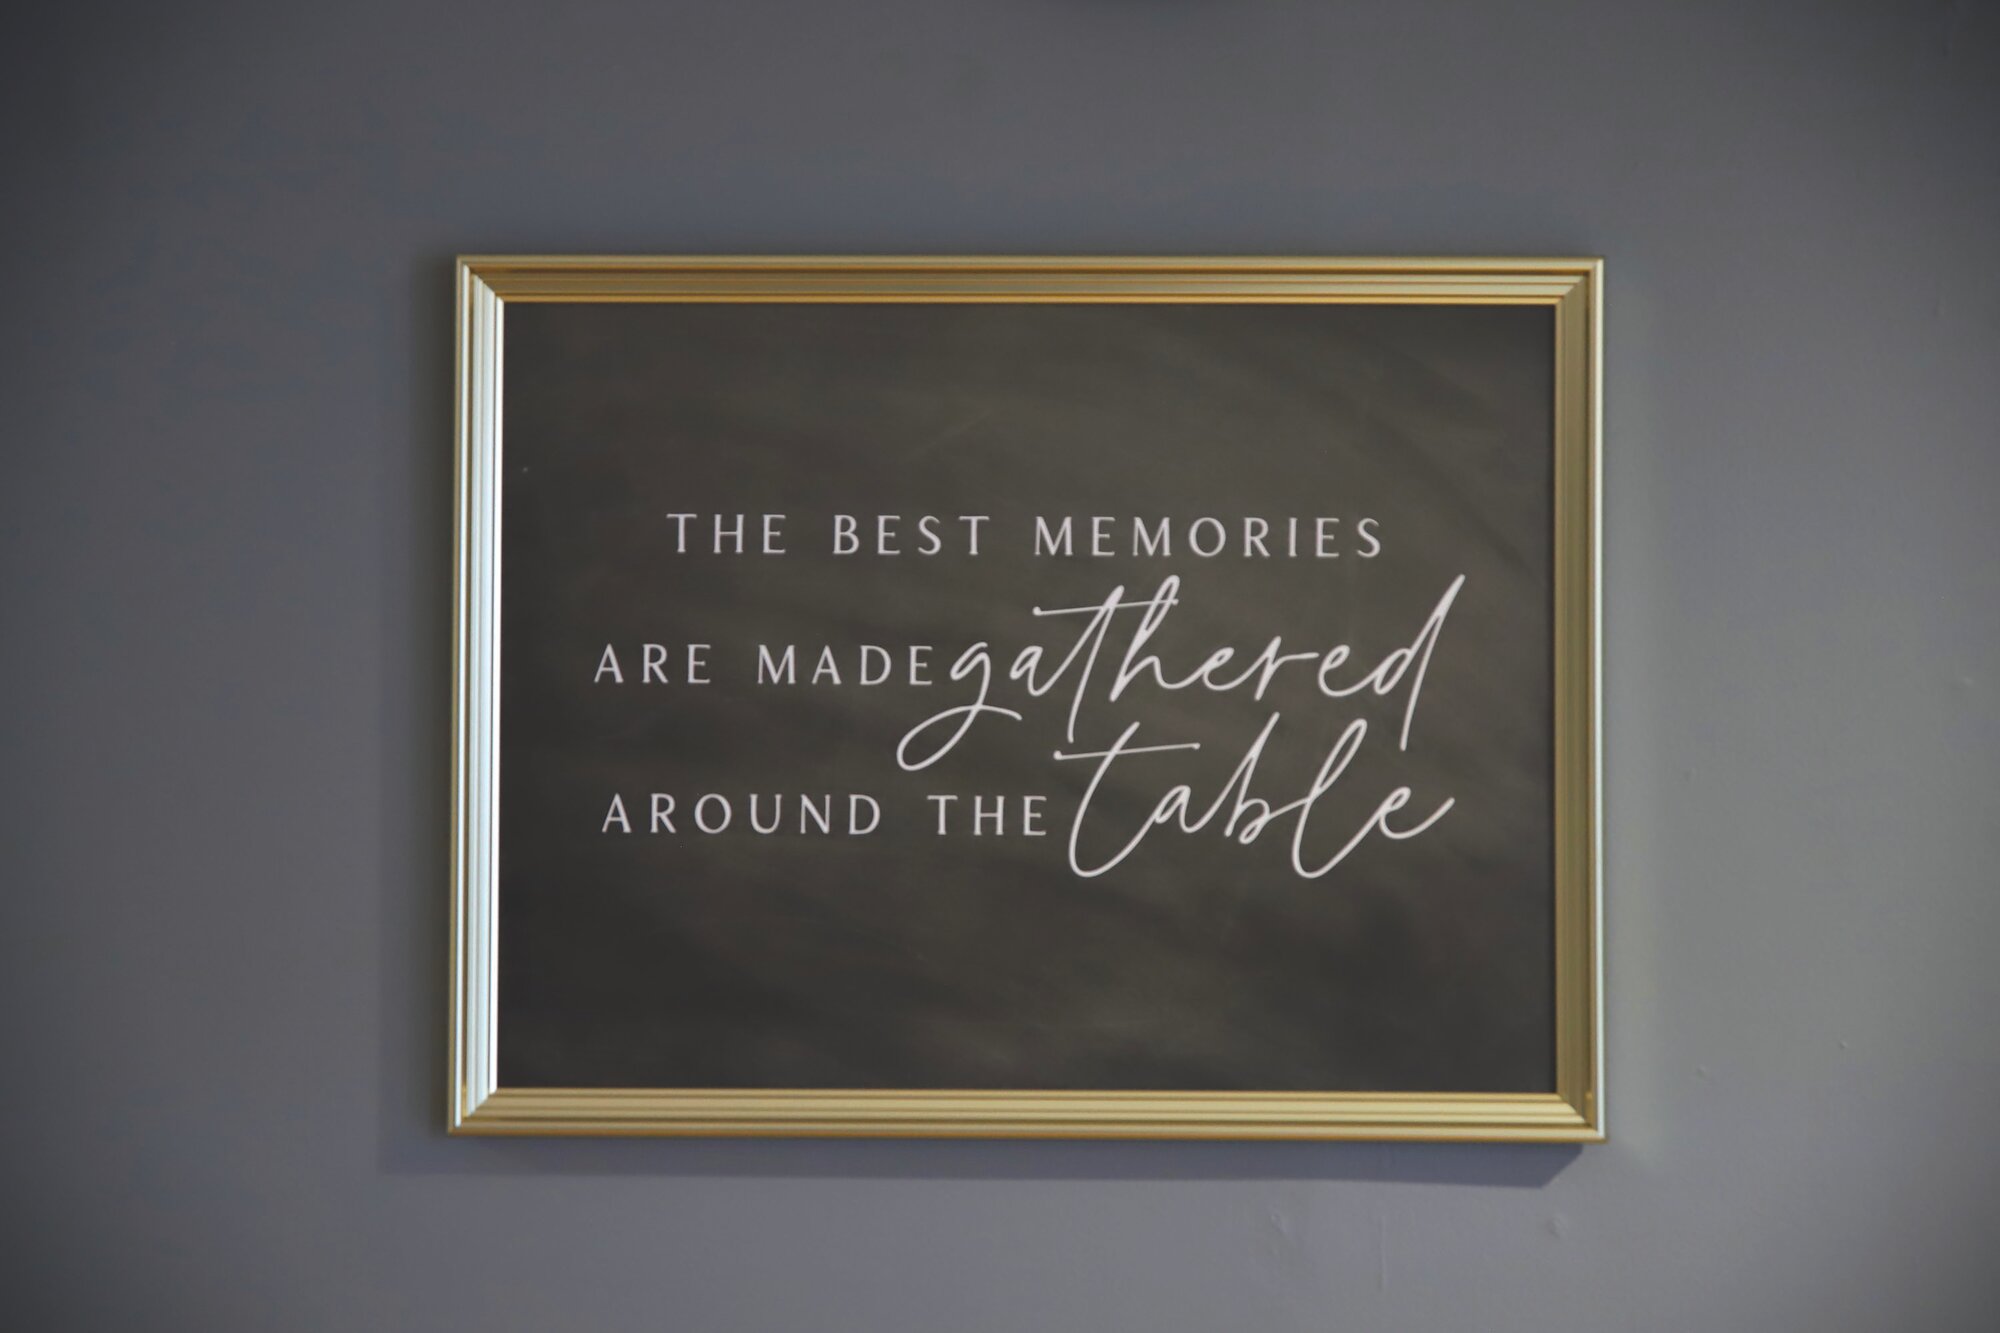 THE BEST MEMORIES
ARE MADE gathered
AROUND THE table